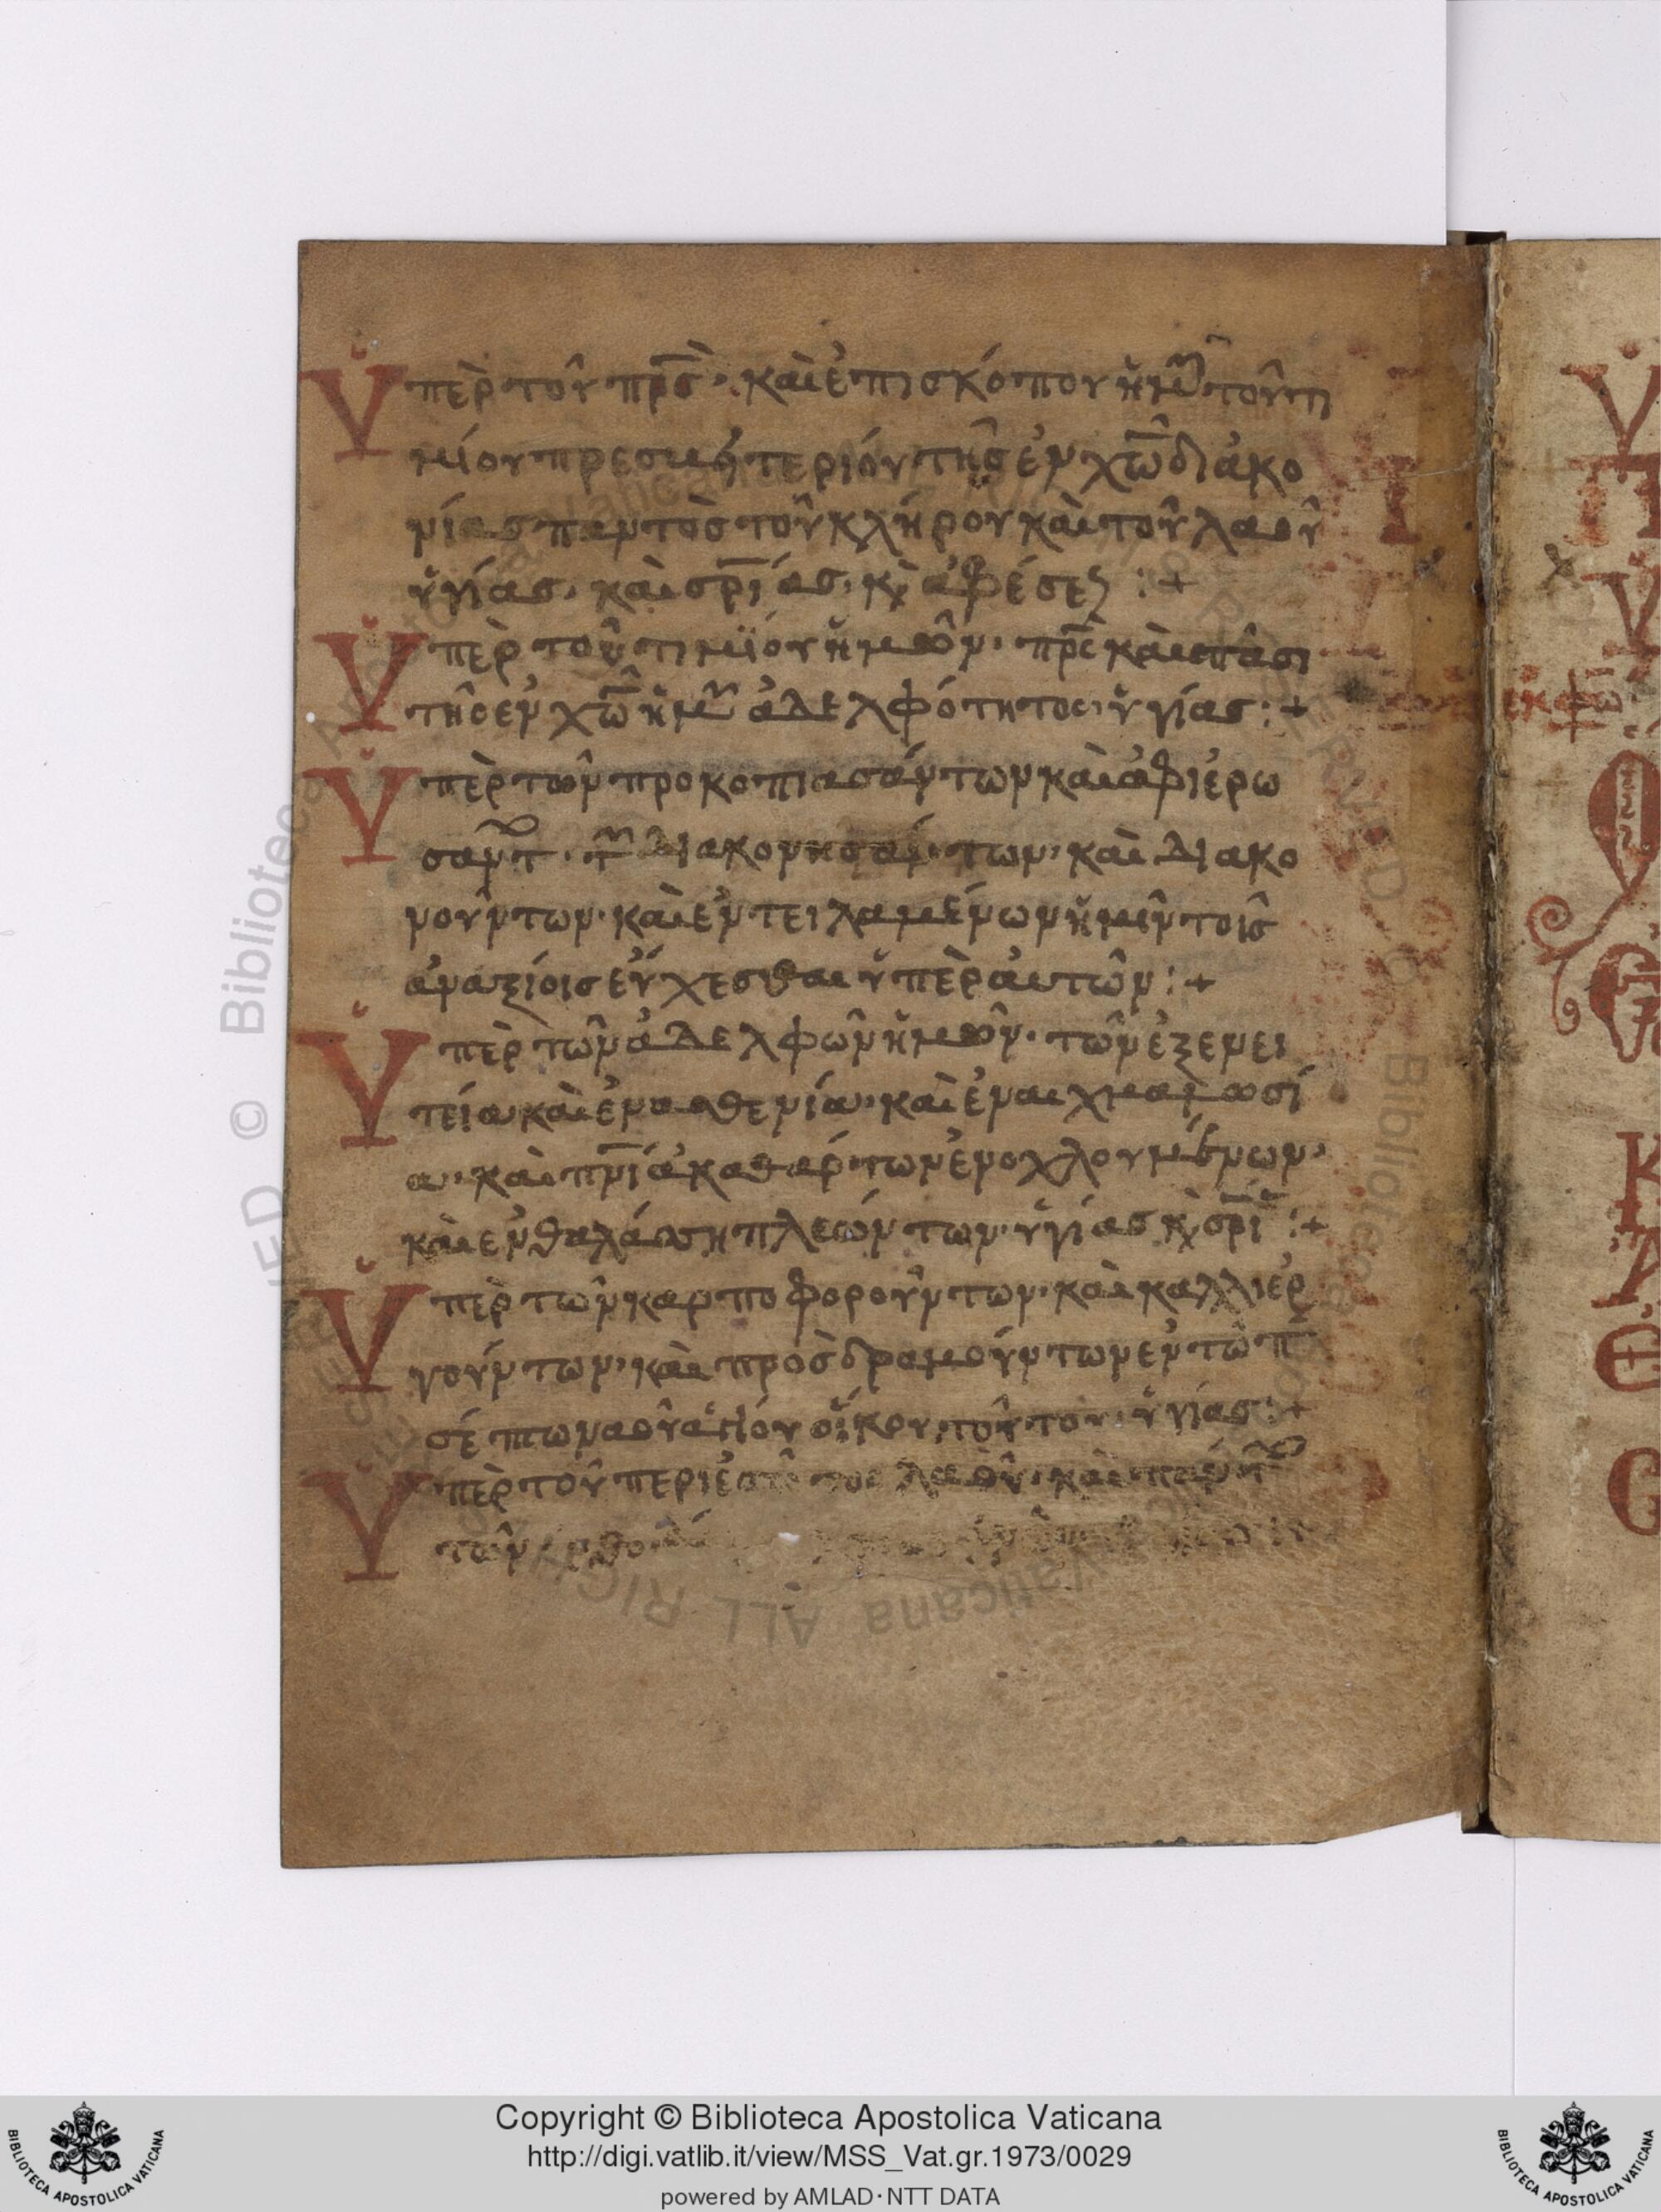 Ὑπὲρ τοῦ πρς̅ · καὶ ἐπισκόπου ἡμ τοῦ τι
μίου πρεσβυτερίου τῆς ἐν χω̅ διακο
νίας παντὸς τοῦ κλήρου καὶ τοῦ λαοῦ
ὑγίας · καὶ σρ̅ίας · κ ἀφέσε :+
Ὑπὲρ τοῦ τιμίου ἡμῶν · πρε̅ καὶ πάσι
τῆς ἐν χω̅ ἡμ ἀδελφότητος · ὑγίας :+
Ὑπὲρ τῶν προκοπιασάντων καὶ ἀφιέρω
σαντ · τ διακονησάντων · καὶ διακο
νούντων · καὶ ἐντειλαμένων ἡμῖν τοῖς
ἀναξίοις εὔχεσθαι ὑπὲρ αὐτῶν :+
Ὑπὲρ τῶν ἀδελφῶν ἡμῶν · τῶν ἐξενει
τεία καὶ ἐν ασθενία · καὶ ἐν αιχμαλωσί
α · καὶ πν̅ι ἀκαθάρτων ἐνοχλουμένων ·
καὶ ἐν θαλάσση πλεόντων · ὑγίας κ σρ̅ι :+
Ὑπὲρ τῶν καρποφορούντων · καὶ καλλιερ
γούντων · καὶ προσδραμούντων ἐν τῶ π
σέπτω ναοῦ ἁγίου οἴκου τούτου · ὑγίας :+
Ὑπὲρ τοῦ περιεστῶτος λαοῦ · καὶ παντ
τῶν
Copyright © Biblioteca Apostolica Vaticana
http://digi.vatlib.it/view/MSS_Vat.gr.1973/0029
powered by AMLAD·NTT DATA
BIBLIOTECA APOSTOLICA VATICANA
BIBLIOTECA APOSTOLICA VATICANA